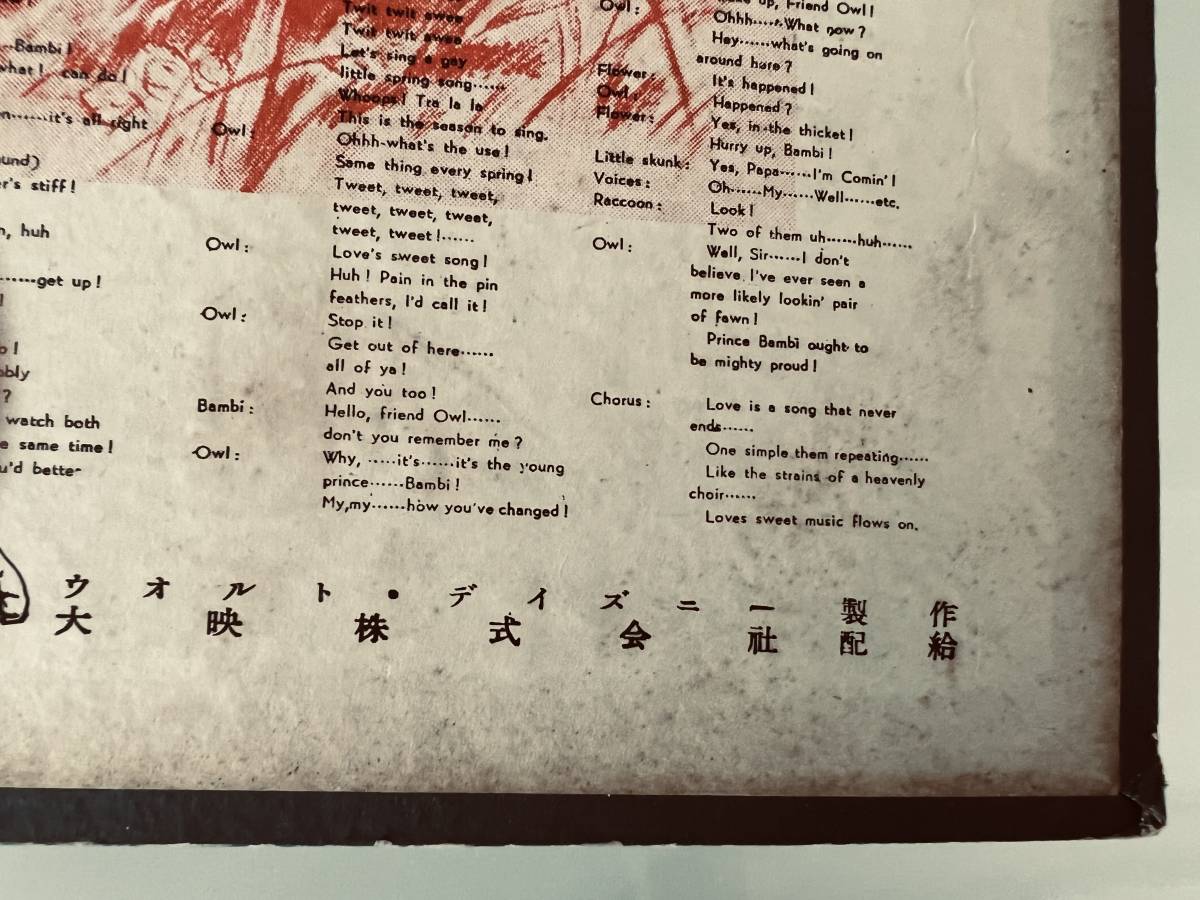 Bambi!
what I can do!
it's all right
und)
er's stiff!
huh
get up!
watch both
e same time!
u'd better
Twit twit swee
Twit twit swee
Let's sing a gay
little spring song......
Whoops! Tra la la
Owl: This is the season to sing.
Ohhh-what's the use!
Same thing every spring!
Tweet, tweet, tweet,
tweet, tweet, tweet,
tweet, tweet!......
Owl: Love's sweet song!
Huh! Pain in the pin
feathers, I'd call it!
Owl: Stop it!
Get out of here......
all of ya!
And you too!
Bambi: Hello, friend Owl......
don't you remember me?
Owl: Why, ......it's......it's the young
prince......Bambi!
My, my......how you've changed!
up, Friend Owl!
Owl: Ohhh......What now?
Hey......what's going on
around here?
Flower: It's happened!
Owl: Happened?
Flower: Yes, in the thicket!
Hurry up, Bambi!
Little skunk: Yes, Papa......I'm Comin'!
Voices: Oh......My......Well......etc.
Raccoon: Look!
Two of them uh......huh......
Owl: Well, Sir......I don't
believe I've ever seen a
more likely lookin' pair
of fawn!
Prince Bambi ought to
be mighty proud!
Chorus: Love is a song that never
ends......
One simple them repeating......
Like the strains of a heavenly
choir......
Loves sweet music flows on.
ウオルト・デイズニー製作
大映株式会社配給